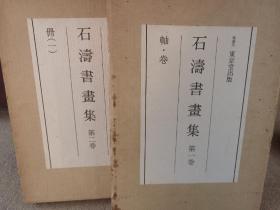 石濤書畫集 第二卷
冊(一)
東京堂出版
石濤書畫集 第一卷
軸・卷